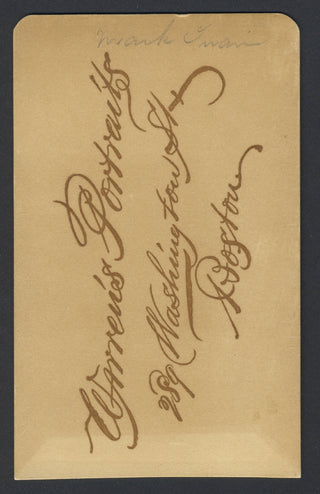 Mark Twain
Warren's Portraits
289 Washington St.
Boston